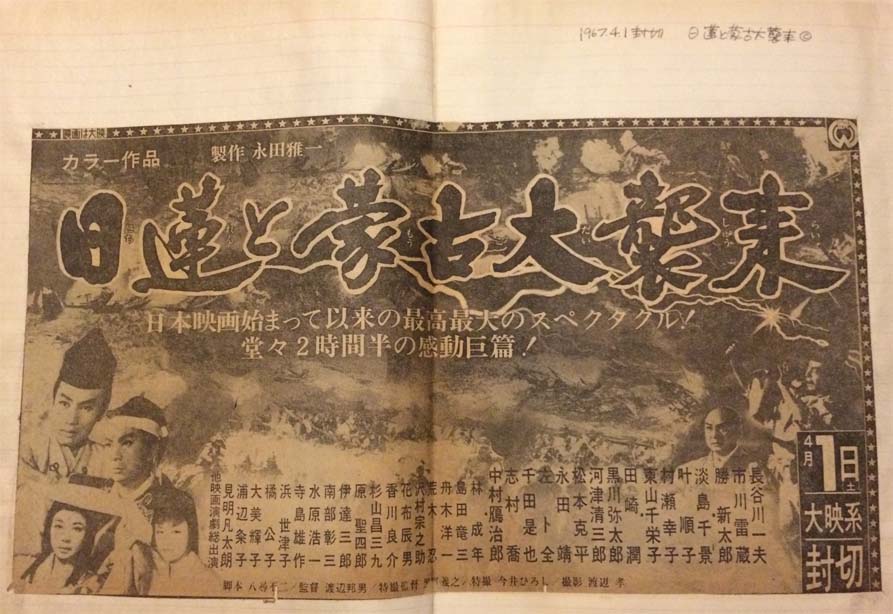 1967.4.1 封切 日蓮と蒙古大襲来
映画は大映
カラー作品 製作 永田雅一
日蓮と蒙古大襲来
日本映画始まって以来の最高最大のスペクタクル!
堂々2時間半の感動巨篇!
長谷川一夫
市川雷蔵
勝・新太郎
淡島千景
叶・順子
村瀬幸子
東山千栄子
田崎・潤
黒川弥太郎
河津清三郎
松本克平
永田・靖
左・卜全
千田是也
志村・喬
中村鴈治郎
林・成年
島田竜三
舟木洋一
荒木・忍
沢村宗之助
花布辰男
香川良介
杉山昌三九
原聖四郎
伊達三郎
南部彰三
水原浩一
寺島雄作
浜世津子
橘公子
大美輝子
浦辺粂子
見明凡太朗
他映画演劇総出演
4月1日(土)
大映系
封切
脚本 八尋不二/監督 渡辺邦男/特撮 今井ひろし/撮影 渡辺 孝